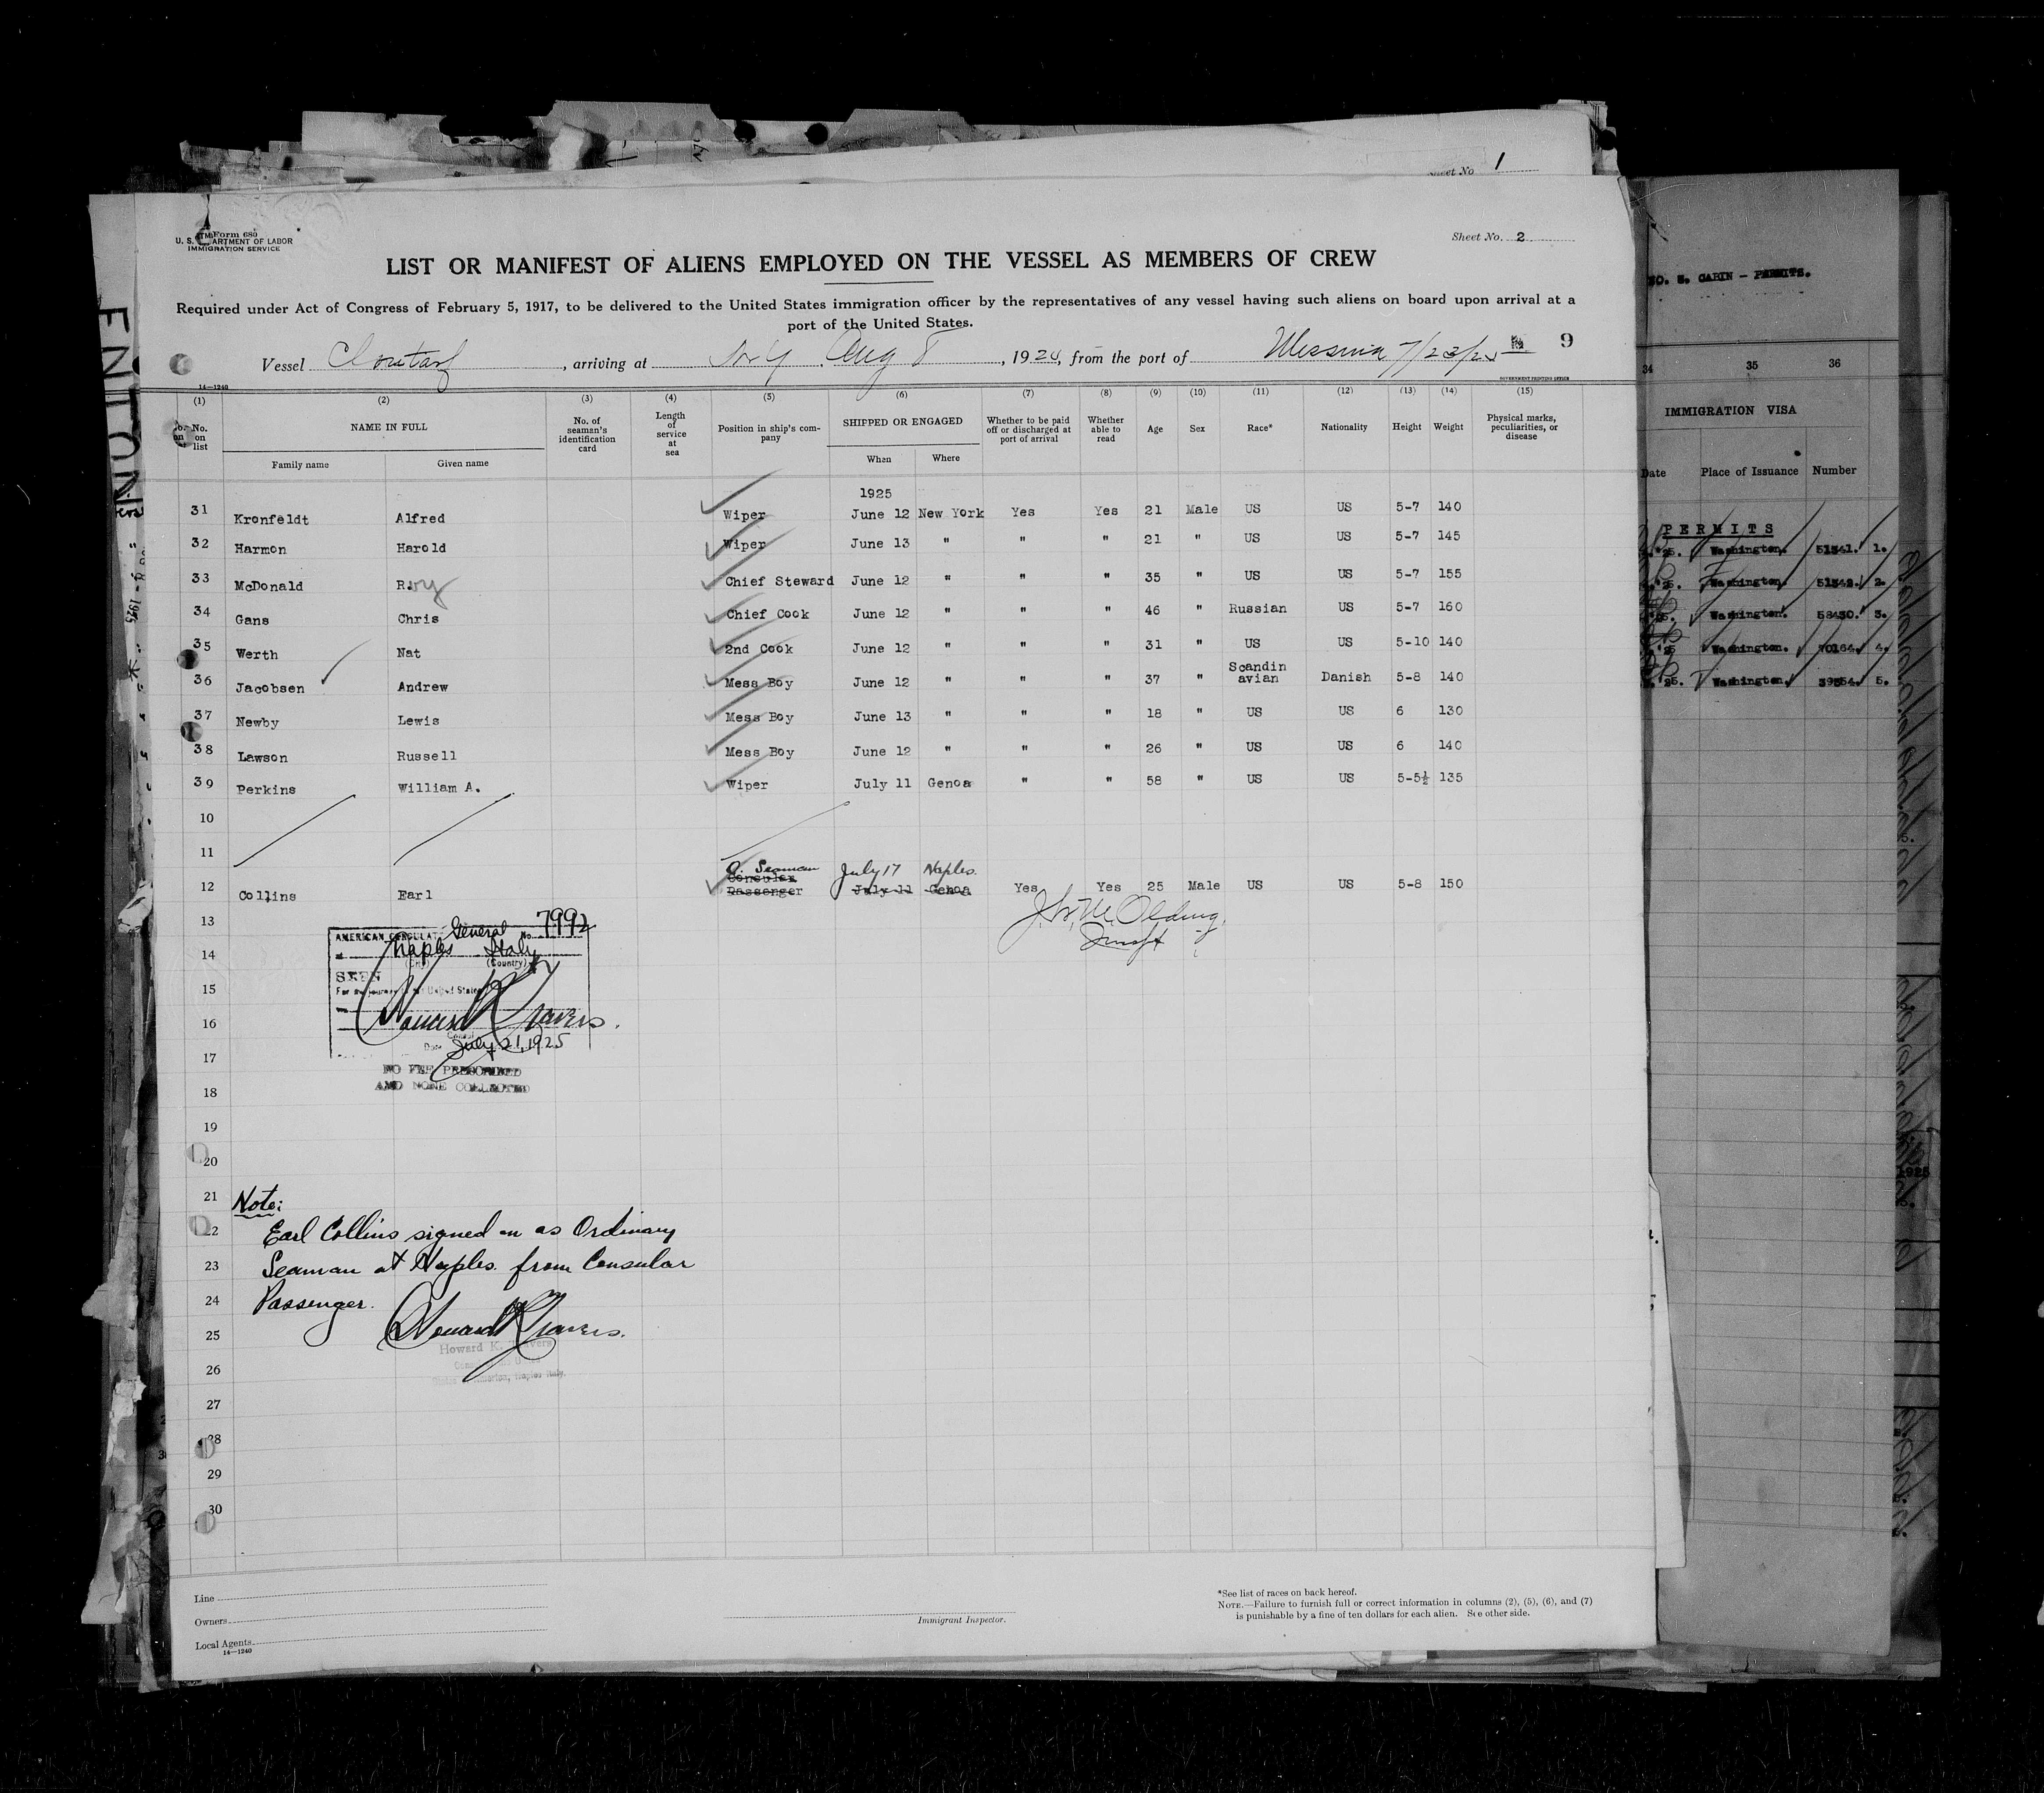 Sheet No 1
Form 680
U. S. DEPARTMENT OF LABOR
IMMIGRATION SERVICE
Sheet No. 2
LIST OR MANIFEST OF ALIENS EMPLOYED ON THE VESSEL AS MEMBERS OF CREW
Required under Act of Congress of February 5, 1917, to be delivered to the United States immigration officer by the representatives of any vessel having such aliens on board upon arrival at a
port of the United States.
Vessel Clontarf, arriving at N.Y. Aug 8, 1924, from the port of Messina 7/23/25 9
14—1240
GOVERNMENT PRINTING OFFICE
(1) (2) (3) (4) (5) (6) (7) (8) (9) (10) (11) (12) (13) (14) (15)
No. on list NAME IN FULL No. of seaman's identification card Length of service at sea Position in ship's company SHIPPED OR ENGAGED Whether to be paid off or discharged at port of arrival Whether able to read Age Sex Race* Nationality Height Weight Physical marks, peculiarities, or disease
Family name Given name When Where
1925
31 Kronfeldt Alfred Wiper June 12 New York Yes Yes 21 Male US US 5-7 140
32 Harmon Harold Wiper June 13 " " " 21 " US US 5-7 145
33 McDonald Roy Chief Steward June 12 " " " 35 " US US 5-7 155
34 Gans Chris Chief Cook June 12 " " " 46 " Russian US 5-7 160
35 Werth Nat 2nd Cook June 12 " " " 31 " US US 5-10 140
36 Jacobsen Andrew Mess Boy June 12 " " " 37 " Scandinavian Danish 5-8 140
37 Newby Lewis Mess Boy June 13 " " " 18 " US US 6 130
38 Lawson Russell Mess Boy June 12 " " " 26 " US US 6 140
39 Perkins William A. Wiper July 11 Genoa " " 58 " US US 5-5½ 135
10
11
O. Seaman July 17 Naples.
Consular
12 Collins Earl Passenger July 11 Genoa Yes Yes 25 Male US US 5-8 150
13
14
15
16
17
18
19
20
21
22
23
24
25
26
27
28
29
30
General No. 7992
AMERICAN CONSULATE
at Naples Italy
(City) (Country)
SEEN
For the journey to the United States
Howard K Travers.
Consul
Date July 21, 1925
NO FEE PRESCRIBED
AND NONE COLLECTED
Note:
Earl Collins signed on as Ordinary
Seaman at Naples. from Consular
Passenger.
Howard K Travers.
Howard K. Travers
Naples Italy.
Line
Owners
Local Agents
14—1240
Immigrant Inspector.
*See list of races on back hereof.
NOTE.—Failure to furnish full or correct information in columns (2), (5), (6), and (7)
is punishable by a fine of ten dollars for each alien. See other side.
CABIN - PERMITS.
34 35 36
IMMIGRATION VISA
Date Place of Issuance Number
PERMITS
'25. Washington. 51541. 1.
'25. Washington. 51542. 2.
'25. Washington. 58430. 3.
'25 Washington. 70164. 4.
'25. Washington. 39354. 5.